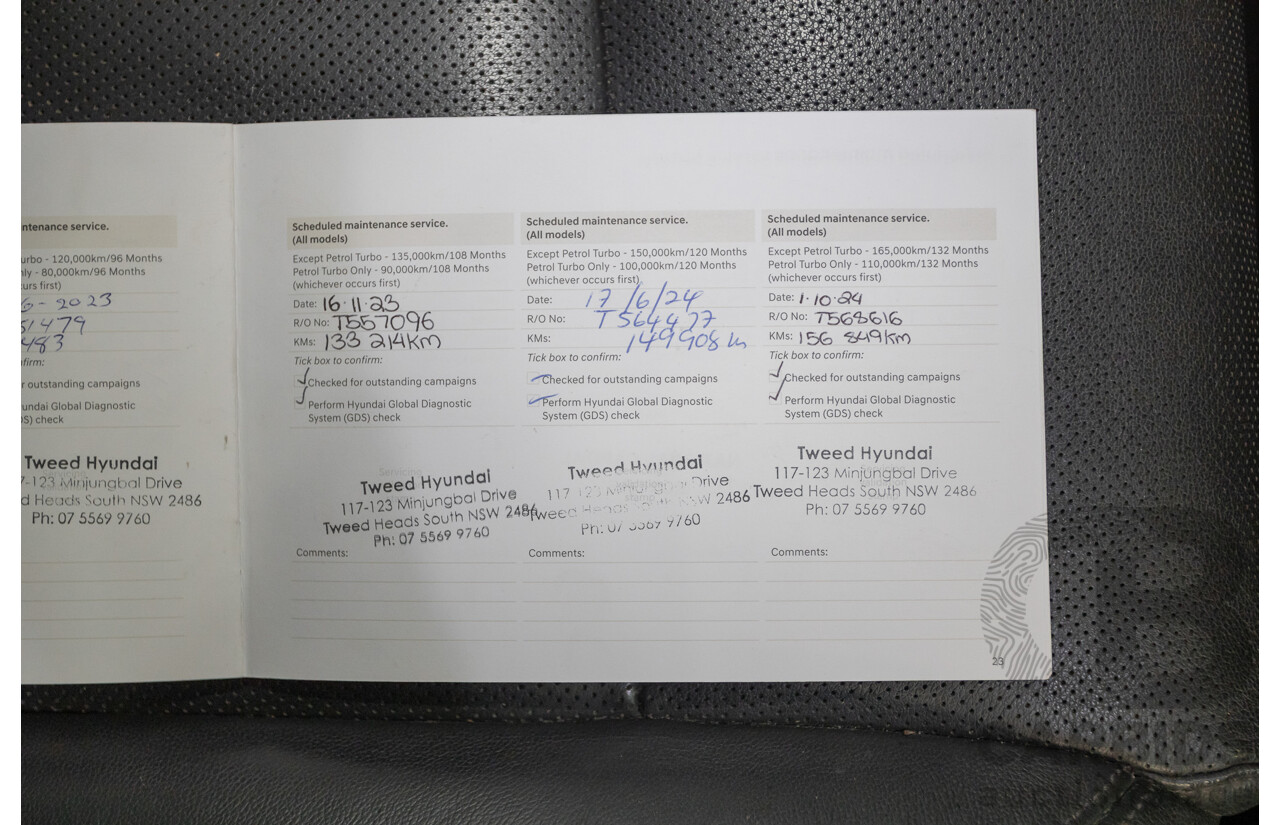 ntenance service.
urbo - 120,000km/96 Months
ly - 80,000km/96 Months
urs first)
6-2023
51479
483
nfirm:
r outstanding campaigns
undai Global Diagnostic
S) check
Tweed Hyundai
7-123 Minjungbal Drive
d Heads South NSW 2486
Ph: 07 5569 9760
Scheduled maintenance service.
(All models)
Except Petrol Turbo - 135,000km/108 Months
Petrol Turbo Only - 90,000km/108 Months
(whichever occurs first)
Date: 16·11·23
R/O No: T557096
KMs: 133 214KM
Tick box to confirm:
Checked for outstanding campaigns
Perform Hyundai Global Diagnostic
System (GDS) check
Servicing
Tweed Hyundai
117-123 Minjungbal Drive
Tweed Heads South NSW 2486
Ph: 07 5569 9760
Comments:
Scheduled maintenance service.
(All models)
Except Petrol Turbo - 150,000km/120 Months
Petrol Turbo Only - 100,000km/120 Months
(whichever occurs first)
Date: 17/6/24
R/O No: T564477
KMs: 149908
Tick box to confirm:
Checked for outstanding campaigns
Perform Hyundai Global Diagnostic
System (GDS) check
Tweed Hyundai
117 123 Minjungbal Drive
Tweed Heads South NSW 2486
stamp
Ph: 07 5569 9760
Comments:
Scheduled maintenance service.
(All models)
Except Petrol Turbo - 165,000km/132 Months
Petrol Turbo Only - 110,000km/132 Months
(whichever occurs first)
Date: 1·10·24
R/O No: T568616
KMs: 156 849KM
Tick box to confirm:
Checked for outstanding campaigns
Perform Hyundai Global Diagnostic
System (GDS) check
Tweed Hyundai
117-123 Minjungbal Drive
Tweed Heads South NSW 2486
Ph: 07 5569 9760
Comments:
23